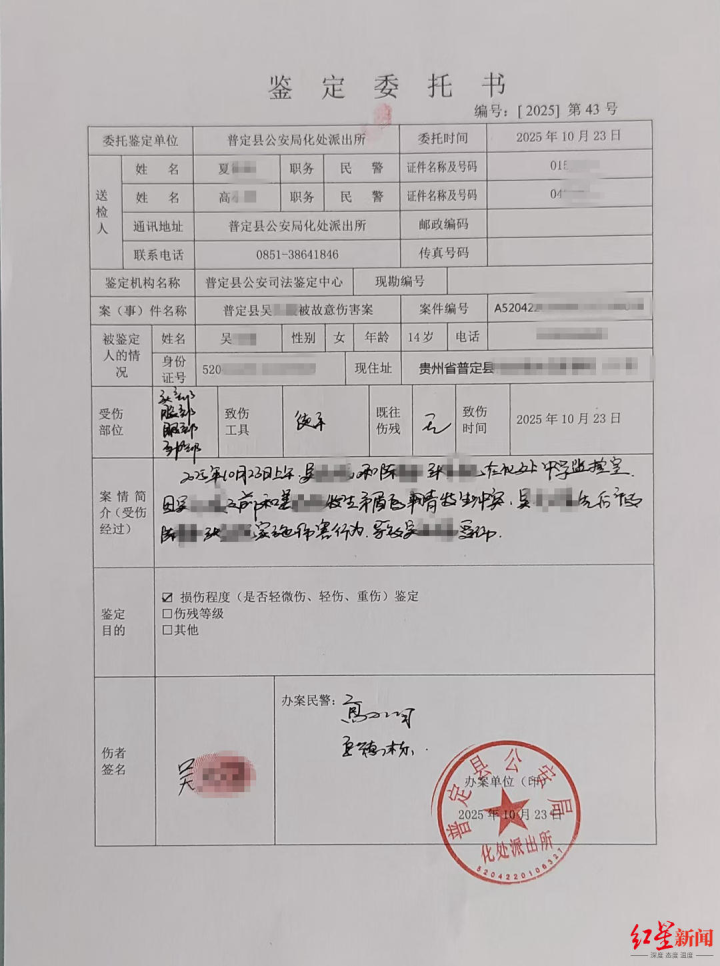 鉴定委托书
编号：[2025]第43号
委托鉴定单位 普定县公安局化处派出所 委托时间 2025年10月23日
送检人
姓名 夏 职务 民警 证件名称及号码 015
姓名 高 职务 民警 证件名称及号码 04
通讯地址 普定县公安局化处派出所 邮政编码
联系电话 0851-38641846 传真号码
鉴定机构名称 普定县公安司法鉴定中心 现勘编号
案（事）件名称 普定县吴 被故意伤害案 案件编号 A520422
被鉴定人的情况
姓名 吴 性别 女 年龄 14岁 电话
身份证号 520 现住址 贵州省普定县
受伤部位 头部 腹部 腿部 致伤工具 徒手 既往伤残 无 致伤时间 2025年10月23日
案情简介（受伤经过）
2025年10月23日上午，吴 和陈 张 在化处中学监控室
因吴 之前和姜 发生矛盾的事情发生冲突，吴 先后被
陈 张 实施伤害行为，导致吴 受伤.
鉴定目的
☑损伤程度（是否轻微伤、轻伤、重伤）鉴定
□伤残等级
□其他
伤者签名 吴
办案民警：
办案单位（印）
2025年10月23日
普定县公安局
化处派出所
5204220106327
红星新闻
深度 态度 温度